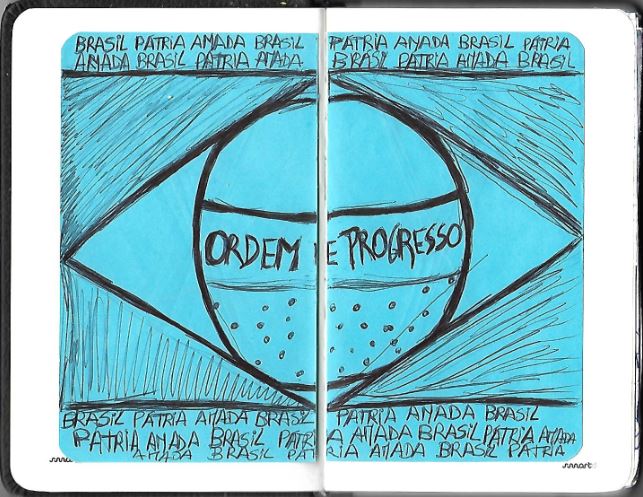 BRASIL PÁTRIA AMADA BRASIL PÁTRIA AMADA BRASIL PÁTRIA
AMADA BRASIL PÁTRIA AMADA BRASIL PÁTRIA AMADA BRASIL
ORDEM E PROGRESSO
BRASIL PÁTRIA AMADA BRASIL PÁTRIA AMADA BRASIL
PÁTRIA AMADA BRASIL PÁTRIA AMADA BRASIL PÁTRIA AMADA
AMADA BRASIL PÁTRIA AMADA BRASIL PÁTRIA